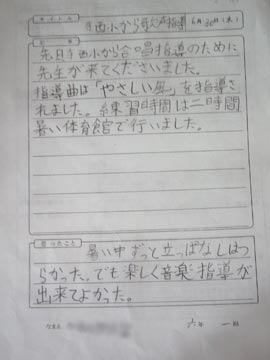 西小から歌声指導 6月30日(木)
先日、西小から合唱指導のために
先生が来てくださいました。
指導曲は「やさしい風」を指導さ
れました。練習時間は二時間
暑い体育館で行いました。
思ったこと
暑い中ずっと立っぱなしはつ
らかった。でも楽しく音楽指導が
出来てよかった。
なまえ 六年 一組